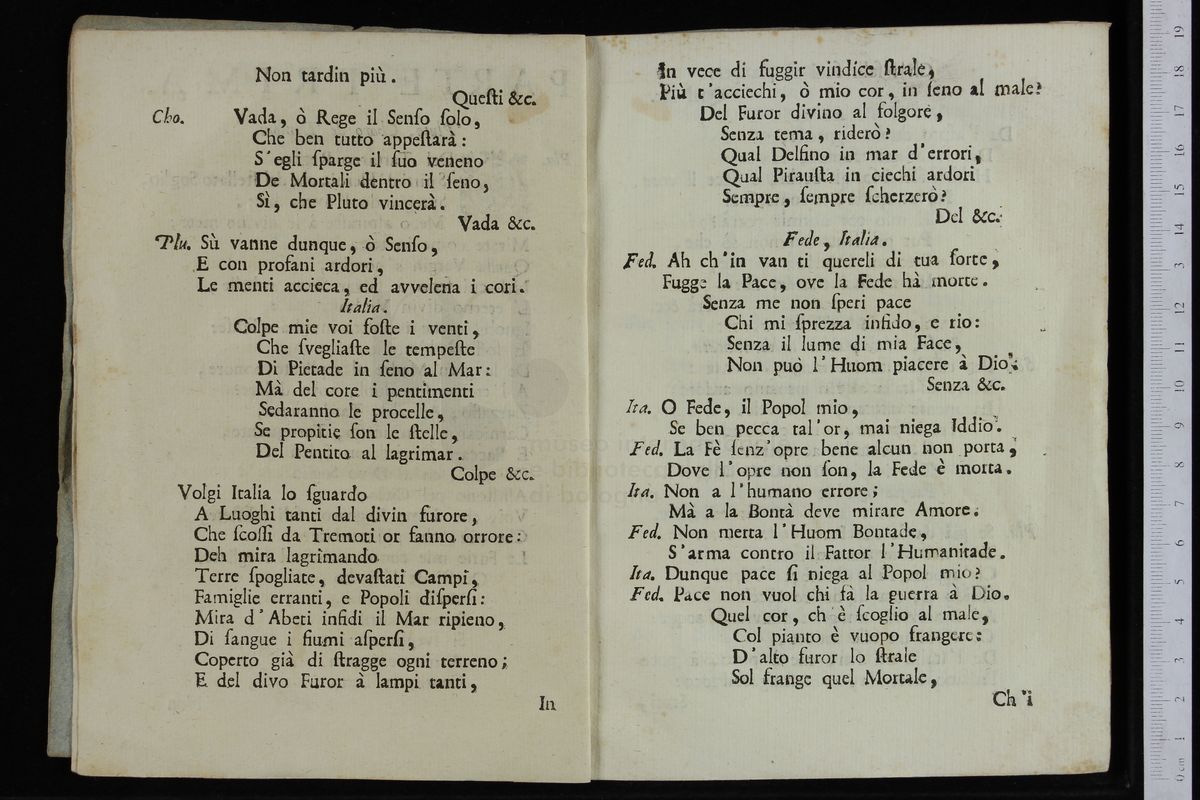 Non tardin più.
Queſti &c.
Cho. Vada, ò Rege il Senſo ſolo,
Che ben tutto appeſtarà:
S'egli ſparge il ſuo veneno
De Mortali dentro il ſeno,
Sì, che Pluto vincerà.
Vada &c.
Plu. Sù vanne dunque, ò Senſo,
E con profani ardori,
Le menti accieca, ed avvelena i cori.
Italia.
Colpe mie voi foſte i venti,
Che ſvegliaſte le tempeſte
Di Pietade in ſeno al Mar:
Mà del core i pentimenti
Sedaranno le procelle,
Se propitie ſon le ſtelle,
Del Pentito al lagrimar.
Colpe &c.
Volgi Italia lo ſguardo
A Luoghi tanti dal divin furore,
Che ſcoſſi da Tremoti or fanno orrore:
Deh mira lagrimando
Terre ſpogliate, devaſtati Campi,
Famiglie erranti, e Popoli diſperſi:
Mira d'Abeti infidi il Mar ripieno,
Di ſangue i fiumi aſperſi,
Coperto già di ſtragge ogni terreno;
E del divo Furor à lampi tanti,
In
In vece di fuggir vindice ſtrale,
Più t'acciechi, ò mio cor, in ſeno al male?
Del Furor divino al folgore,
Senza tema, riderò?
Qual Delfino in mar d'errori,
Qual Pirauſta in ciechi ardori
Sempre, ſempre ſcherzerò?
Del &c.
Fede, Italia.
Fed. Ah ch'in van ti quereli di tua ſorte,
Fugge la Pace, ove la Fede hà morte.
Senza me non ſperi pace
Chi mi ſprezza infido, e rio:
Senza il lume di mia Face,
Non può l'Huom piacere à Dio.
Senza &c.
Ita. O Fede, il Popol mio,
Se ben pecca tal'or, mai niega Iddio.
Fed. La Fè ſenz'opre bene alcun non porta,
Dove l'opre non ſon, la Fede è morta.
Ita. Non a l'humano errore;
Mà a la Bontà deve mirare Amore.
Fed. Non merta l'Huom Bontade,
S'arma contro il Fattor l'Humanitade.
Ita. Dunque pace ſi niega al Popol mio?
Fed. Pace non vuol chi fà la guerra à Dio.
Quel cor, ch'è ſcoglio al male,
Col pianto è vuopo frangere:
D'alto furor lo ſtrale
Sol frange quel Mortale,
Ch'i